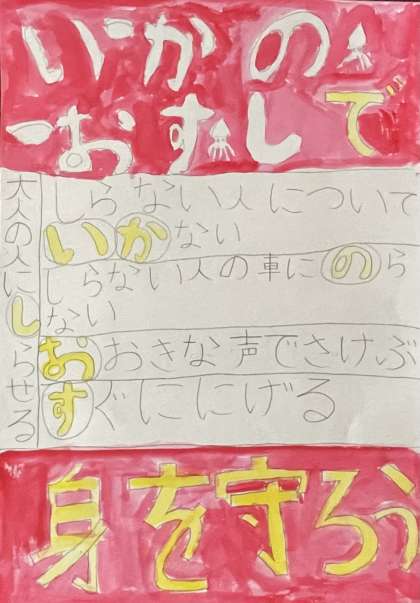 いかの
おすしで
しらない人について
いかない
しらない人の車にのら
ない
おおきな声でさけぶ
すぐににげる
大人の人にしらせる
身を守ろう